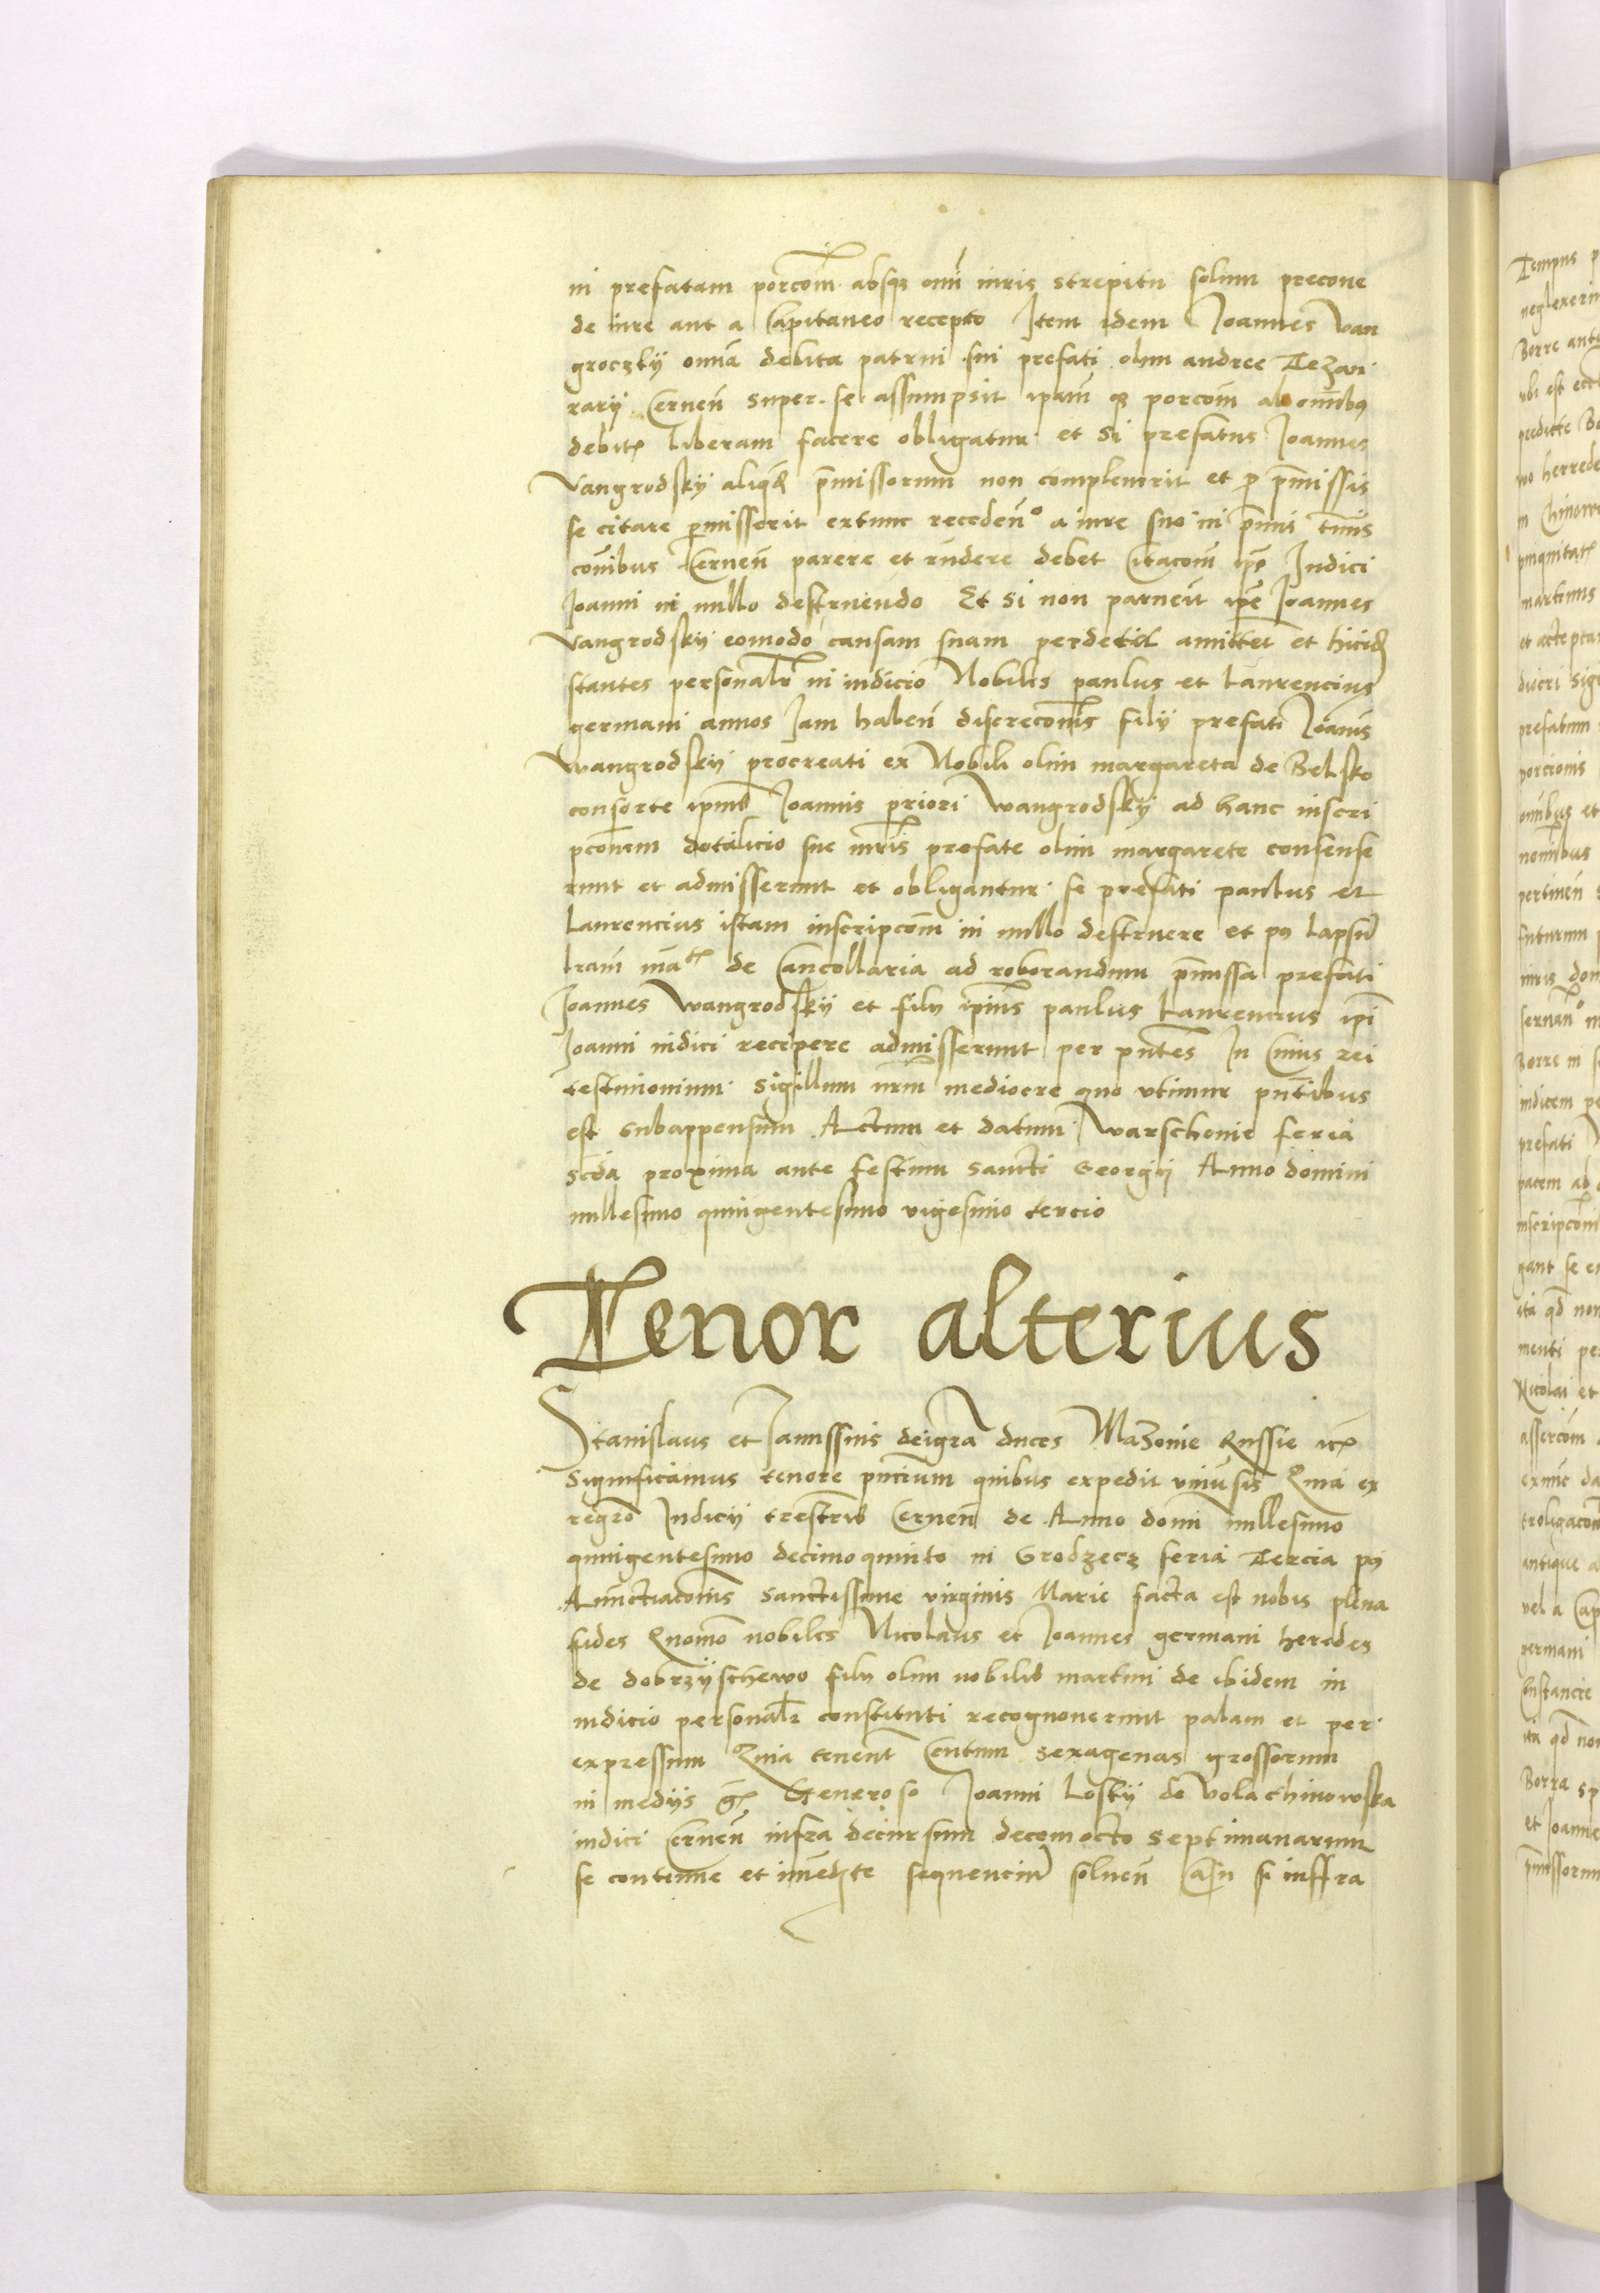 in prefatam porcom absqz omi iuris strepitu solum precone
de iure aut a Capitaneo recepto Item idem Joannes Van
groczky omia debita patrui sui prefati olim andree Tezau
rarij Cernen super se assumpsit ipam qz porcom ab omibus
debitis liberam facere obligatur et Si prefatus Joannes
Vangrodsky aliqd pmissorum non compleuerit et p pmissis
se citare pmisserit extunc receden a iure suo in pmis tmis
comibus Cernen parere et rndere debet Citacom ipse Judici
Joanni in nullo destruendo Et Si non paruerit ipe Joannes
Vangrodsky eomodo causam suam perdet al amittet et hicidem
stantes personalr in iudicio Nobiles paulus et Laurencius
germani annos Jam haben discreconis filij prefati Joanis
Wangrodskij procreati ex Nobili olim margareta de Belsko
consorte ipius Joannis priori Wangrodskij ad hanc inscri
pconem dotalicio sue mris prefate olim margarete consense
runt et admisserunt et obligantur se prefati paulus et
Laurencius istam inscripcom in nullo destruere et pq lapsu
lram de Cancellaria ad roborandum pmissa prefati
Joannes Wangrodskij et filij ipius paulus Laurencius ipi
Joanni iudici recipere admisserunt per pntes In Cuius rei
testimonium Sigillum nrm mediocre quo vtimur pntibus
est subappensum Actum et datum Warschouie feria
scda proxima ante festum sancti Georgij Anno domini
millesimo quingentesimo vigesimo tercio
Tenor alterius
Stanislaus et Janussius dei gra duces Mazouie Russie etc
Significamus tenore pncium quibus expedit vniusis Quia ex
regro Judicij trestris Cernen de Anno domi millesimo
quingentesimo decimoquinto in Grodzecz feria Tercia pq
Annctiacois sanctissime virginis Marie facta est nobis plena
fides Quomo nobiles Nicolaus et Joannes germani heredes
de dobrzyschewo filij olim nobilis martini de ibidem in
iudicio personalr constituti recognouerunt palam et per
expressum Quia tenent Centum sexagenas grossorum
in medijs gs Generoso Joanni Losky de Vola Chinowska
iudici Cernen infra decursum decemocto Septimanarum
se continue et imedte sequenciu soluen Casu si inffra